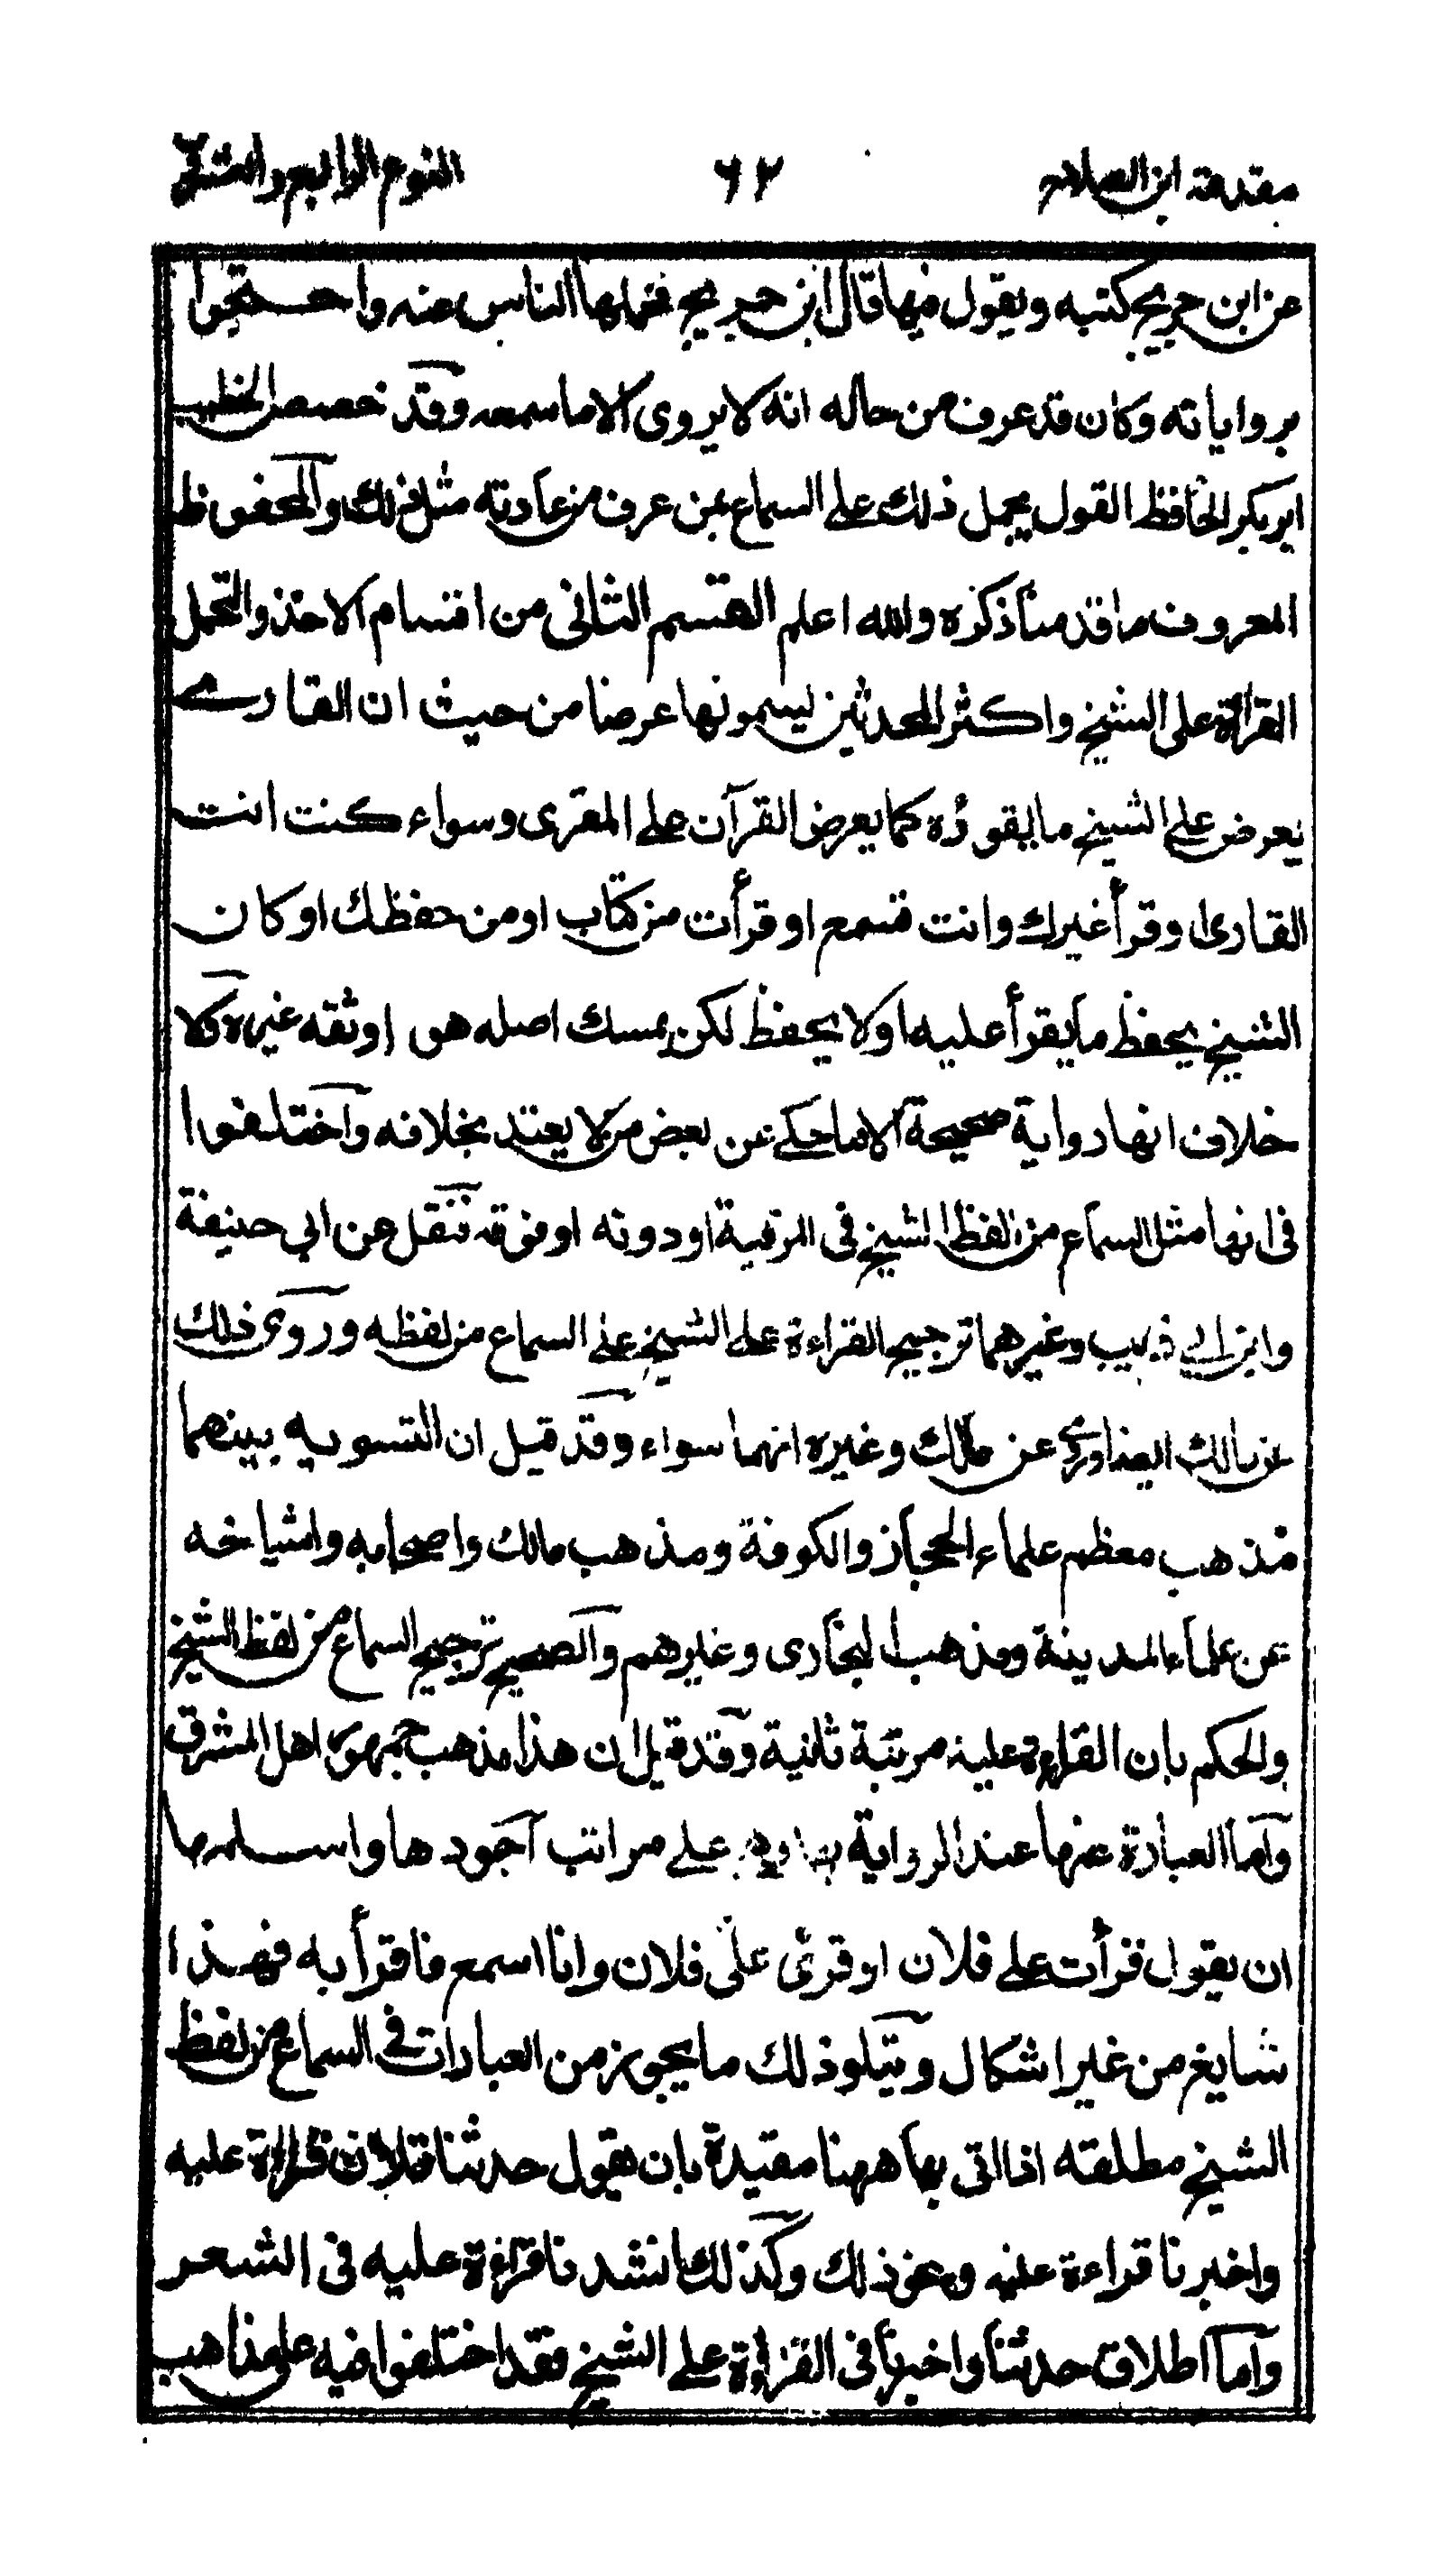 مقدمة ابن الصلاح ٦٢ النوع الرابع والعشرون
عن ابن جريج كتبه ويقول فيها قال ابن جريج فحملها الناس عنه واحتجوا
برواياته وكان قد عرف من حاله انه لا يروى الا ما سمعه وقد خصص الخطيب
ابو بكر الحافظ القول بحمل ذلك على السماع بمن عرف من عادته مثل ذلك والمحفوظ
المعروف ما قدمنا ذكره والله اعلم القسم الثانى من اقسام الاخذ والتحمل
القراءة على الشيخ واكثر المحدثين يسمونها عرضا من حيث ان القارے
يعرض على الشيخ ما يقرؤه كما يعرض القرآن على المقرى وسواء كنت انت
القارى او قرأ غيرك وانت تسمع او قرأت من كتاب او من حفظك او كان
الشيخ يحفظ ما يقرأ عليه او لا يحفظ لكن يمسك اصله هو او ثقه غيره ولا
خلاف انها رواية صحيحة الا ما حكے عن بعض من لا يعتد بخلافه واختلفوا
فى انها مثل السماع من لفظ الشيخ فى المرتبة او دونه او فوقه فنقل عن ابي حنيفة
وابن ابي ذيب وغيرهما ترجيح القراءة على الشيخ على السماع من لفظه وروى ذلك
عن مالك ايضا وروے عن مالك وغيره انهما سواء وقد قيل ان التسويه بينهما
مذهب معظم علماء الحجاز والكوفة ومذهب مالك واصحابه واشياخه
من علماء المدينة ومذهب البخارى وغيرهم والصحيح ترجيح السماع من لفظ الشيخ
والحكم بان القراءة عليه مرتبة ثانية وقد قيل ان هذا مذهب جمهور اهل المشرق
واما العبارة عنها عند الرواية بها على مراتب اجودها واسلمها
ان يقول قرأت على فلان او قرئ على فلان وانا اسمع فاقرأ به فهذا
شايغ من غير اشكال ويتلو ذلك ما يجوز من العبارات فى السماع من لفظ
الشيخ مطلقه اذا اتى بها ههنا مقيدة بان يقول حدثنا فلان قراءة عليه
واخبرنا قراءة عليه ونحو ذلك وكذلك انشدنا قراءة عليه فى الشعر
واما اطلاق حدثنا واخبرنا فى القراءة على الشيخ فقد اختلفوا فيه على مذاهب